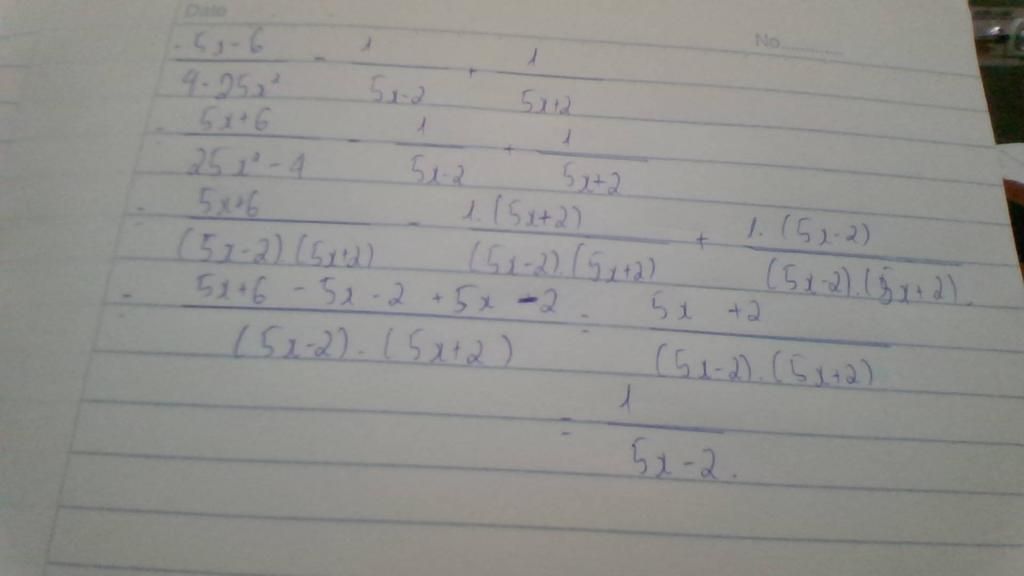 Date
No............
-5x-6/4-25x² - 1/5x-2 + 1/5x+2
= 5x+6/25x²-4 - 1/5x-2 + 1/5x+2
= 5x+6/(5x-2).(5x+2) - 1.(5x+2)/(5x-2).(5x+2) + 1.(5x-2)/(5x-2).(5x+2).
= 5x+6-5x-2+5x-2/(5x-2).(5x+2) = 5x+2/(5x-2).(5x+2)
= 1/5x-2.